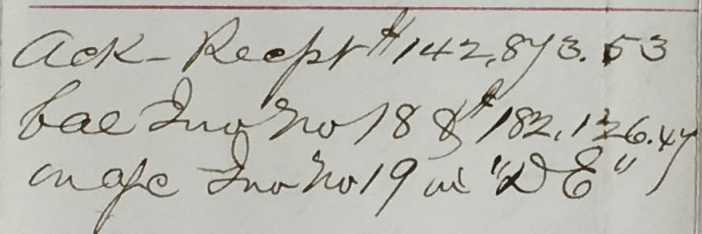 Ack - Recpt $142,873.53
bal Inv No 18 & $182,126.47
on a/c Inv No 19 in "D E"